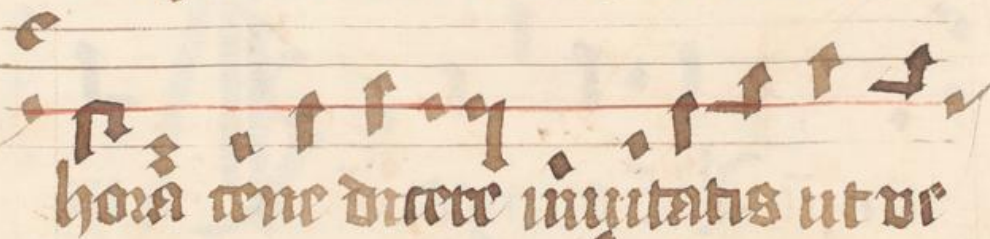 hora cene dicere inuitatis ut ve